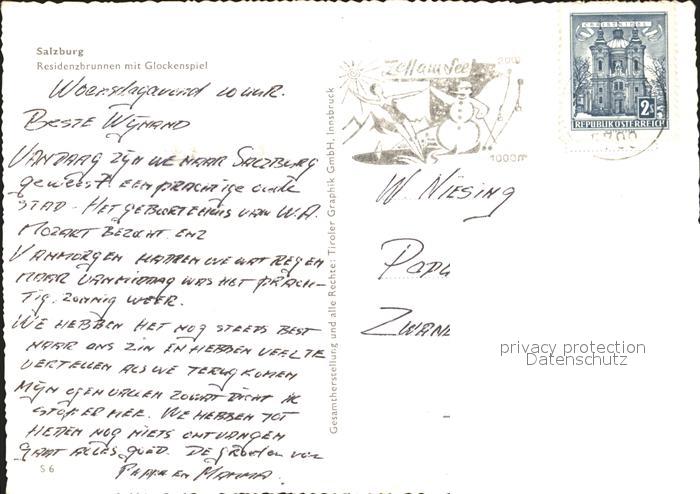 Salzburg
Residenzbrunnen mit Glockenspiel
Woensdagavond 10 uur.
BESTE WIJNAND
VANDAAG ZIJN WE NAAR SALZBURG
geweest EEN PRACHTIGE oude
STAD - HET GEBOORTEHUIS VAN W.A.
MOZART BEZOCHT. ENZ
VANMORGEN HADDEN WE WAT REGEN
MAAR VANMIDDAG WAS HET PRACH-
TIG, ZONNIG WEER.
WE HEBBEN HET NOG STEEDS BEST
NAAR ONS ZIN EN HEBBEN VEEL TE
VERTELLEN ALS WE TERUG KOMEN
MIJN OGEN VALLEN ZOWAT DICHT IK
STOP ER MEE. WE HEBBEN TOT
HEDEN NOG NIETS ONTVANGEN
GAAT ALLES GOED. DE GROETEN VAN
PAPPA EN MAMMA.
S 6
Gesamtherstellung und alle Rechte: Tiroler Graphik GmbH, Innsbruck
Zell am See
2000
1000m
CHRISTKINDL
2S
REPUBLIK ÖSTERREICH
W. NIESING
PAPA
ZWANE
privacy protection
Datenschutz